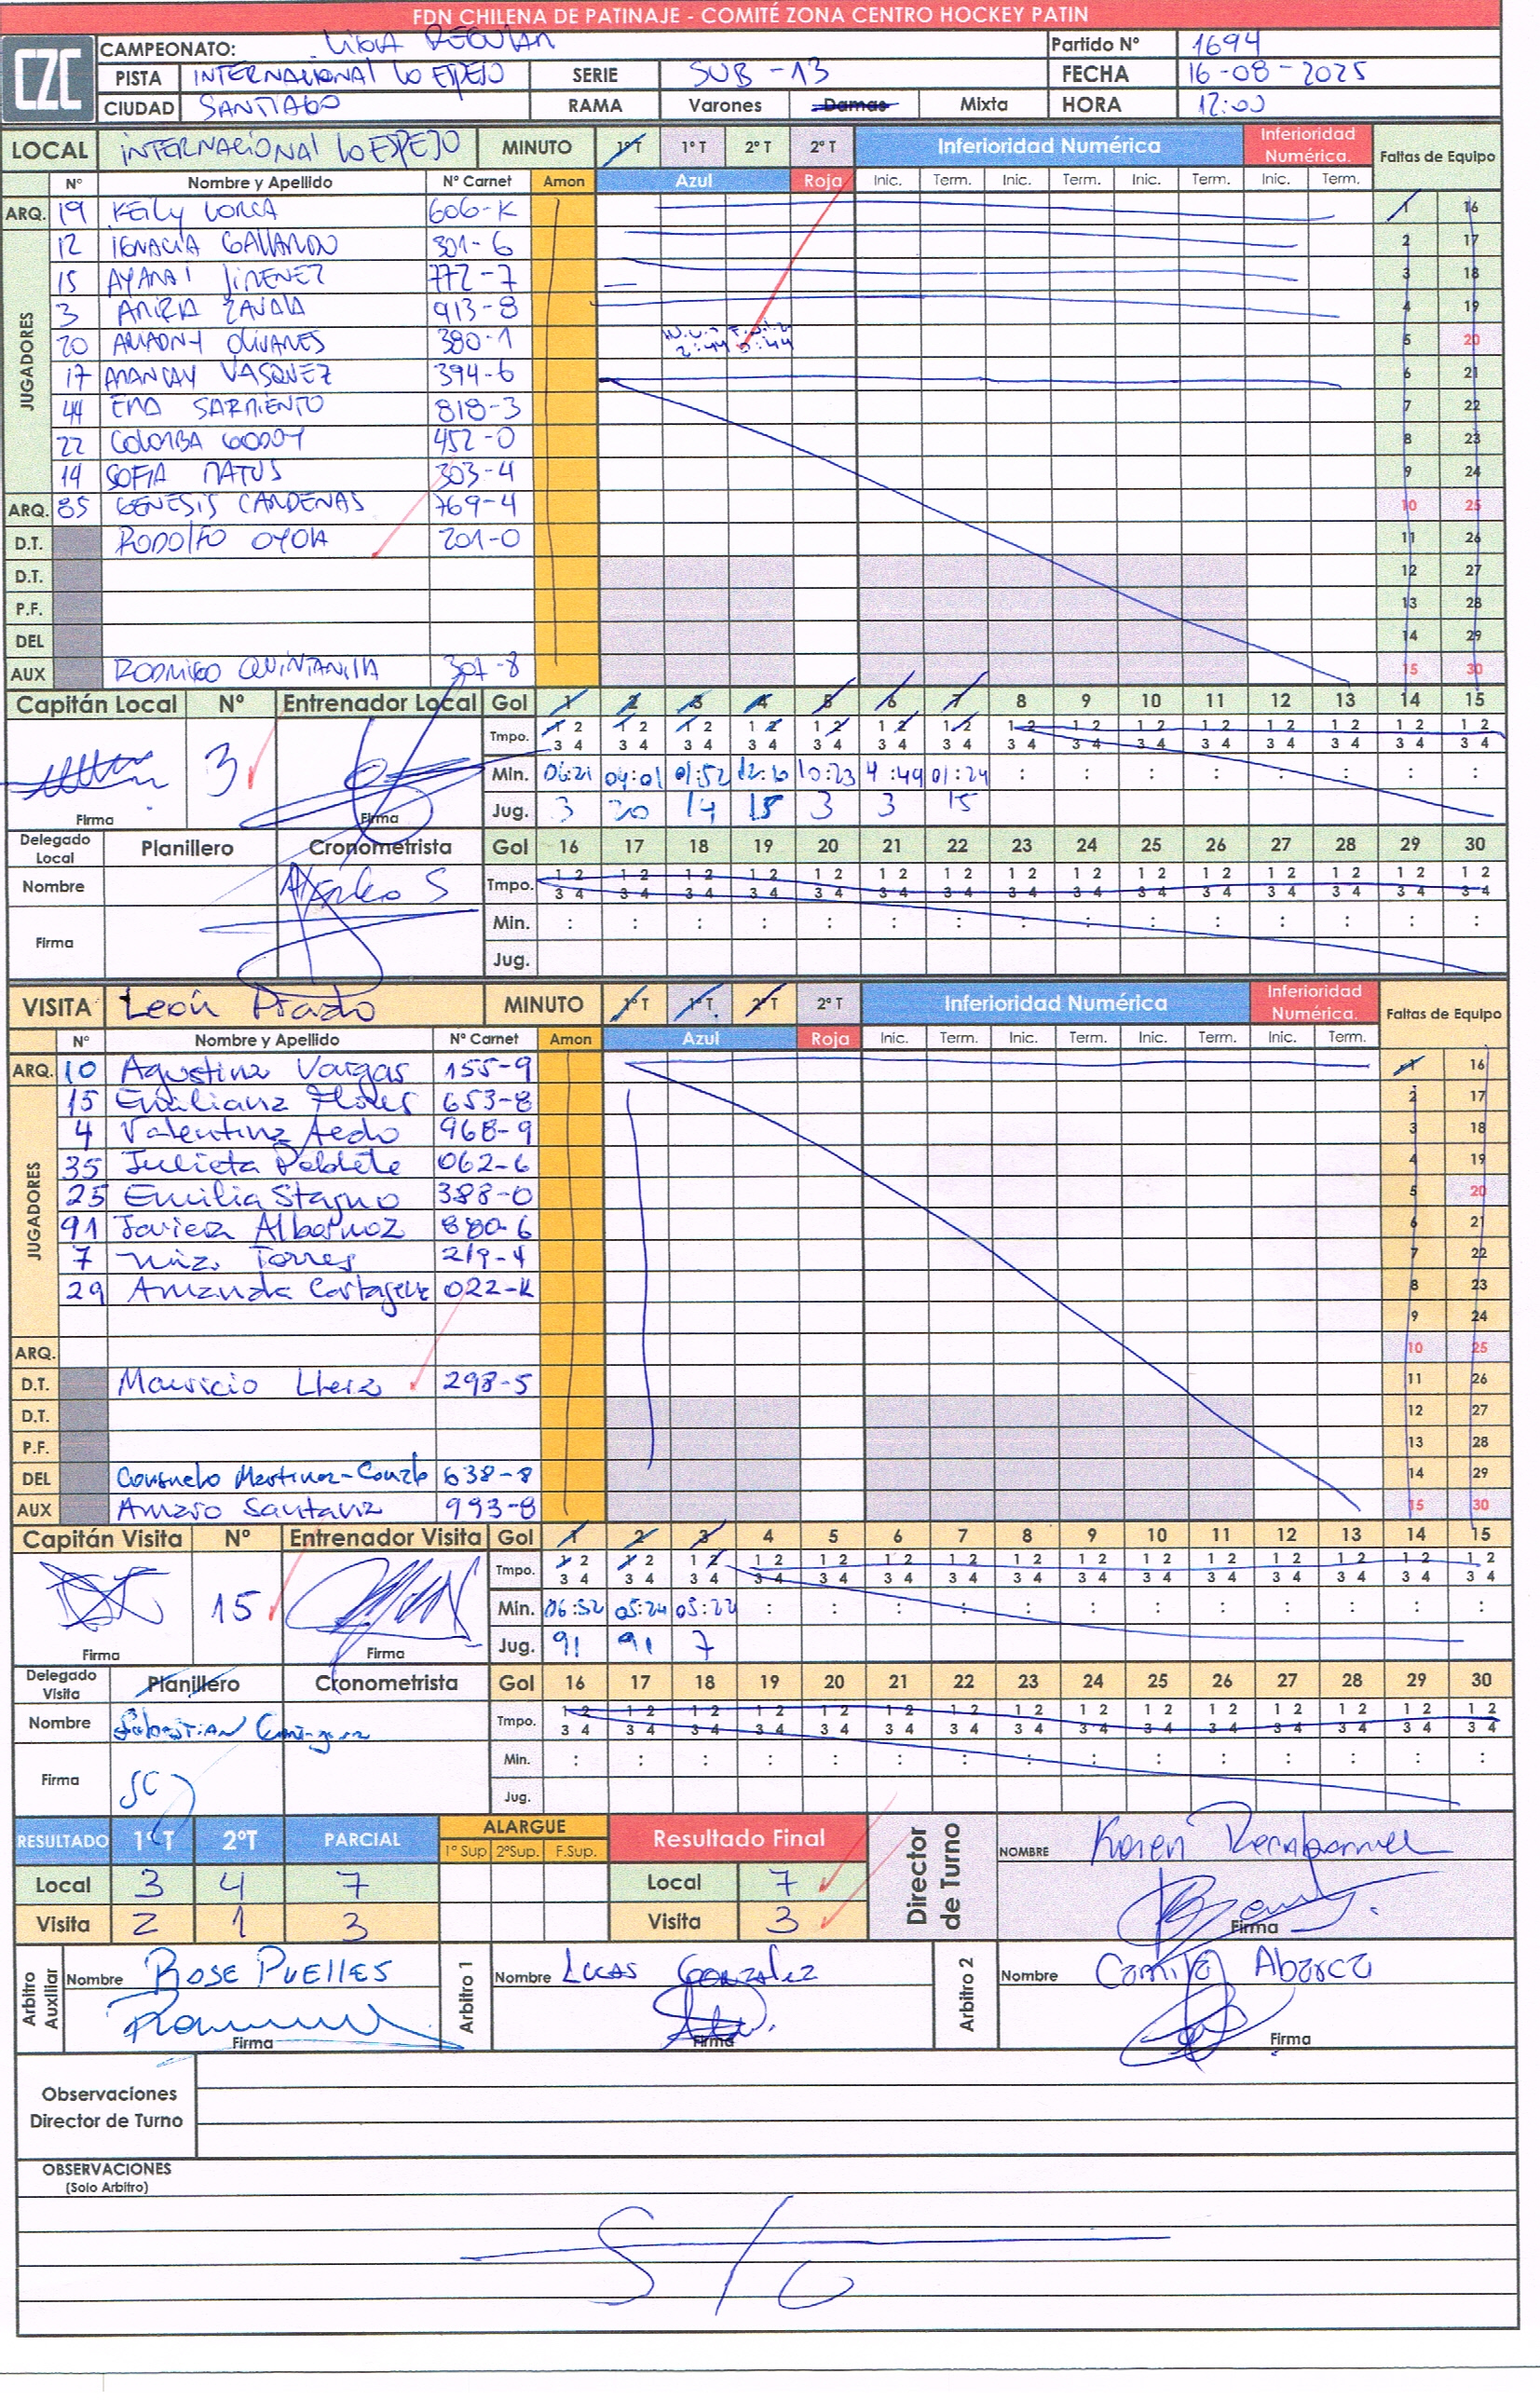 FDN CHILENA DE PATINAJE - COMITÉ ZONA CENTRO HOCKEY PATIN
CZC
CAMPEONATO: LIGA REGULAR Partido Nº 1694
PISTA INTERNACIONAL LO ESPEJO SERIE SUB-13 FECHA 16-08-2025
CIUDAD SANTIAGO RAMA Varones Damas Mixta HORA 12:00
LOCAL INTERNACIONAL LO ESPEJO MINUTO 1º T 1º T 2º T 2º T Inferioridad Numérica Inferioridad Numérica. Faltas de Equipo
Nº Nombre y Apellido Nº Carnet Amon Azul Roja Inic. Term. Inic. Term. Inic. Term. Inic. Term.
ARQ. 19 KEILY LORCA 606-K 1 16
JUGADORES
12 IGNACIA GALLARDO 301-6 2 17
15 JIMENEZ 772-7 3 18
3 ZAVALA 913-8 4 19
20 OLIVARES 380-1 2:44 5 20
17 VASQUEZ 394-6 6 21
44 EMA SARMIENTO 818-3 7 22
22 COLOMBA GODOY 452-0 8 23
14 SOFIA MATUS 303-4 9 24
ARQ. 85 GENESIS CARDENAS 769-4 10 25
D.T. RODOLFO OYOLA 201-0 11 26
D.T. 12 27
P.F. 13 28
DEL 14 29
AUX RODRIGO QUINTANILLA 301-8 15 30
Capitán Local Nº Entrenador Local Gol 1 2 3 4 5 6 7 8 9 10 11 12 13 14 15
Tmpo. 1 2 1 2 1 2 1 2 1 2 1 2 1 2 1 2 1 2 1 2 1 2 1 2 1 2 1 2 1 2
3 4 3 4 3 4 3 4 3 4 3 4 3 4 3 4 3 4 3 4 3 4 3 4 3 4 3 4 3 4
3 Min. 06:21 04:01 01:52 12:10 10:23 4:49 01:24 : : : : : : : :
Firma Firma Jug. 3 20 14 15 3 3 15
Delegado Local Planillero Cronometrista Gol 16 17 18 19 20 21 22 23 24 25 26 27 28 29 30
Nombre Tmpo. 1 2 1 2 1 2 1 2 1 2 1 2 1 2 1 2 1 2 1 2 1 2 1 2 1 2 1 2 1 2
3 4 3 4 3 4 3 4 3 4 3 4 3 4 3 4 3 4 3 4 3 4 3 4 3 4 3 4 3 4
Firma Min. : : : : : : : : : : : : : : :
Jug.
VISITA León Prado MINUTO 1º T 1º T 2º T 2º T Inferioridad Numérica Inferioridad Numérica. Faltas de Equipo
Nº Nombre y Apellido Nº Carnet Amon Azul Roja Inic. Term. Inic. Term. Inic. Term. Inic. Term.
ARQ. 10 Agustina Vargas 155-9 1 16
JUGADORES
15 Emiliana Flores 653-8 2 17
4 Valentina Aedo 968-9 3 18
35 Julieta Poblete 062-6 4 19
25 Emilia Stagno 388-0 5 20
91 Javiera Albornoz 880-6 6 21
7 Torres 219-4 7 22
29 Amanda Cartagena 022-K 8 23
9 24
ARQ. 10 25
D.T. Mauricio 298-5 11 26
D.T. 12 27
P.F. 13 28
DEL Consuelo Martinez 638-8 14 29
AUX Amaro Santana 993-8 15 30
Capitán Visita Nº Entrenador Visita Gol 1 2 3 4 5 6 7 8 9 10 11 12 13 14 15
Tmpo. 1 2 1 2 1 2 1 2 1 2 1 2 1 2 1 2 1 2 1 2 1 2 1 2 1 2 1 2 1 2
3 4 3 4 3 4 3 4 3 4 3 4 3 4 3 4 3 4 3 4 3 4 3 4 3 4 3 4 3 4
15 Min. 06:52 05:24 05:22 : : : : : : : : : : : :
Firma Firma Jug. 91 91 7
Delegado Visita Planillero Cronometrista Gol 16 17 18 19 20 21 22 23 24 25 26 27 28 29 30
Nombre Sebastian Tmpo. 1 2 1 2 1 2 1 2 1 2 1 2 1 2 1 2 1 2 1 2 1 2 1 2 1 2 1 2 1 2
3 4 3 4 3 4 3 4 3 4 3 4 3 4 3 4 3 4 3 4 3 4 3 4 3 4 3 4 3 4
Firma SC Min. : : : : : : : : : : : : : : :
Jug.
RESULTADO 1ºT 2ºT PARCIAL ALARGUE Resultado Final Director de Turno NOMBRE Karen
1º Sup 2ºSup. F.Sup.
Local 3 4 7 Local 7
Visita 2 1 3 Visita 3 Firma
Arbitro Auxiliar Nombre ROSE PUELLES Arbitro 1 Nombre LUCAS GONZALEZ Arbitro 2 Nombre Camila Abarca
Firma Firma Firma
Observaciones
Director de Turno
OBSERVACIONES
(Solo Arbitro)
S/O